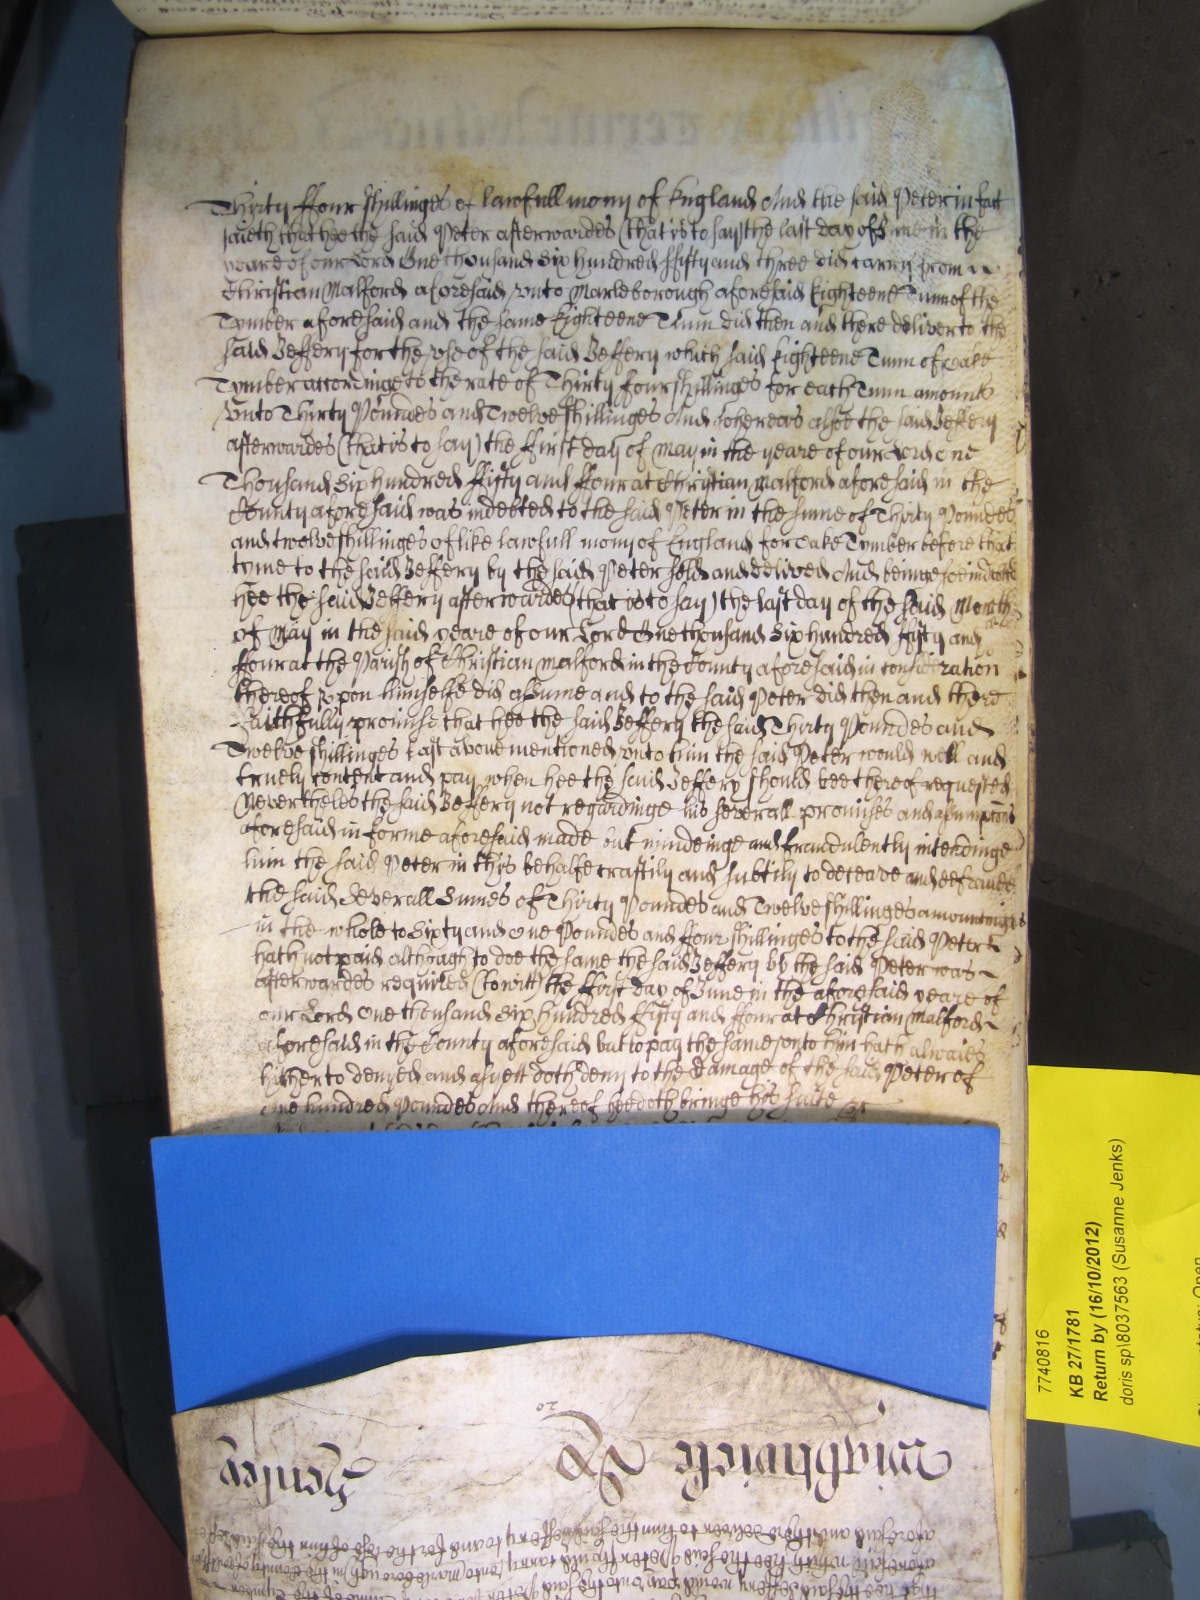 Thirty ffour shillinges of lawfull mony of England And the said Peter in fact
saieth that hee the said Peter afterwardes (that is to say) the last day of June in the
yeare of our Lord One thousand Six hundred ffifty and three did carry from
Christian Malford aforesaid vnto Marleborough aforesaid Eighteene Tunn of the
Tymber aforesaid and the same Eighteene Tunn did then and there deliver to the
said Jeffery for the vse of the said Jeffery which said Eighteene Tunn of Oake
Tymber accordinge to the rate of Thirty four shillinges for each Tunn amounts
vnto Thirty Poundes and Twelve shillinges And whereas alsoe the said Jeffery
afterwardes (that is to say) the first day of May in the yeare of our Lord one
Thousand Six hundred ffifty and ffour at Christian Malford aforesaid in the
County aforesaid was indebted to the said Peter in the sume of Thirty Poundes
and twelve shillinges of like lawfull mony of England for Oake Tymber before that
tyme to the said Jeffery by the said Peter sold and delivered And beinge soe indebted
hee the said Jeffery afterwardes (that is to say) the last day of the said Month
of May in the said yeare of our Lord One thousand Six hundred ffifty and
ffour at the Parish of Christian Malford in the County aforesaid in consideration
thereof vpon himselfe did assume and to the said Peter did then and there
faithfully promise that hee the said Jeffery the said Thirty Poundes and
Twelve shillinges last above mentioned vnto him the said Peter would well and
truely content and pay when hee the said Jeffery should bee thereof requested
Neverthelesthe said Jeffery not regardinge his severall promises and assumptions
aforesaid in forme aforesaid made but mindeinge and fraudulently intendinge
him the said Peter in this behalfe craftily and subtily to deceave and defraude
the said Severall Sumes of Thirty Poundes and Twelve shillinges amountinge
in the whole to Sixty and One Poundes and ffour shillinges to the said Peter
hath not paid although to doe the same the said Jeffery by the said Peter was
afterwardes required (to witt) the ffirst day of June in the aforesaid yeare of
our Lord One thousand Six hundred ffifty and ffour at Christian Malford
aforesaid in the County aforesaid but to pay the same vnto him hath alwaies
hitherto denyed and as yett doth deny to the damage of the said Peter of
One hundred Poundes And thereof hee doth bringe his suite &c
7740816
KB 27/1781
Return by (16/10/2012)
doris sp\8037563 (Susanne Jenks)
20
Wightwicke Ro
Henley